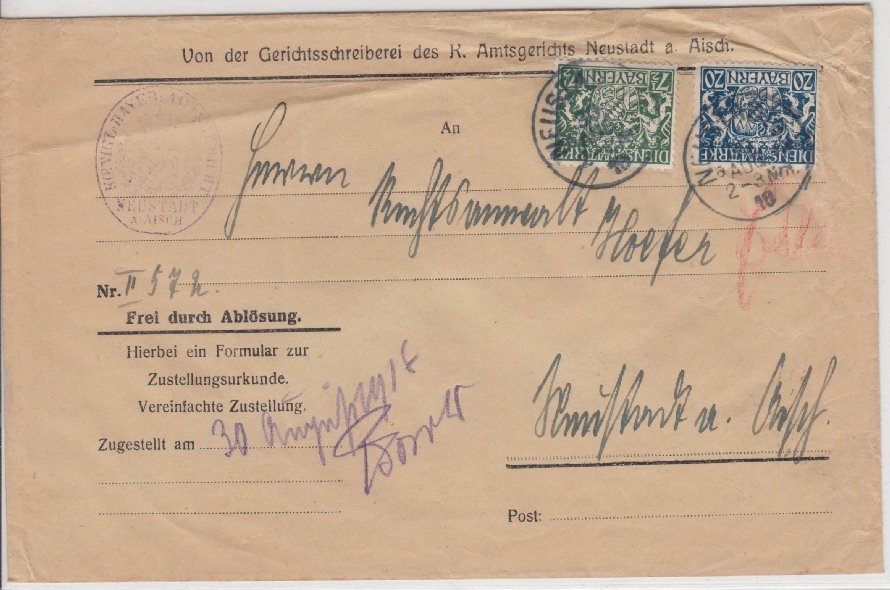 Von der Gerichtsschreiberei des K. Amtsgerichts Neustadt a. Aisch.
7½
BAYERN
DIENSTMARKE
20
BAYERN
20
DIENSTMARKE
NEUSTADT
18
AUG.
2-3 Nm.
18
KOENIGL. BAYER.
NEUSTADT
A. AISCH
An
Herrn
Rechtsanwalt
Hoefer
Nr. II 572.
Frei durch Ablösung.
Hierbei ein Formular zur
Zustellungsurkunde.
Vereinfachte Zustellung.
Zugestellt am 30 August 1918
Neustadt a. Aisch.
Post: